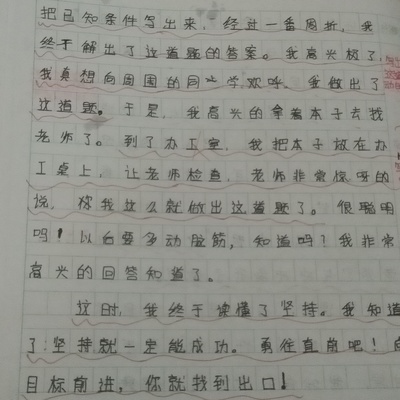 把已知条件写出来，经过一番周折，我
终于解出了这道题的答案。我高兴极了，
我真想向周围的同学欢呼、我做出了
这道题。于是，我高兴的拿着本子去找
老师了。到了办工室，我把本子放在办
工桌上，让老师检查，老师非常惊呀的
说，你我这么就做出这道题了。很聪明
吗！以后要多动脑筋，知道吗？我非常
高兴的回答知道了。
这时，我终于读懂了坚持。我知道
了:坚持就一定能成功。勇往直前吧！向
目标前进，你就找到出口！